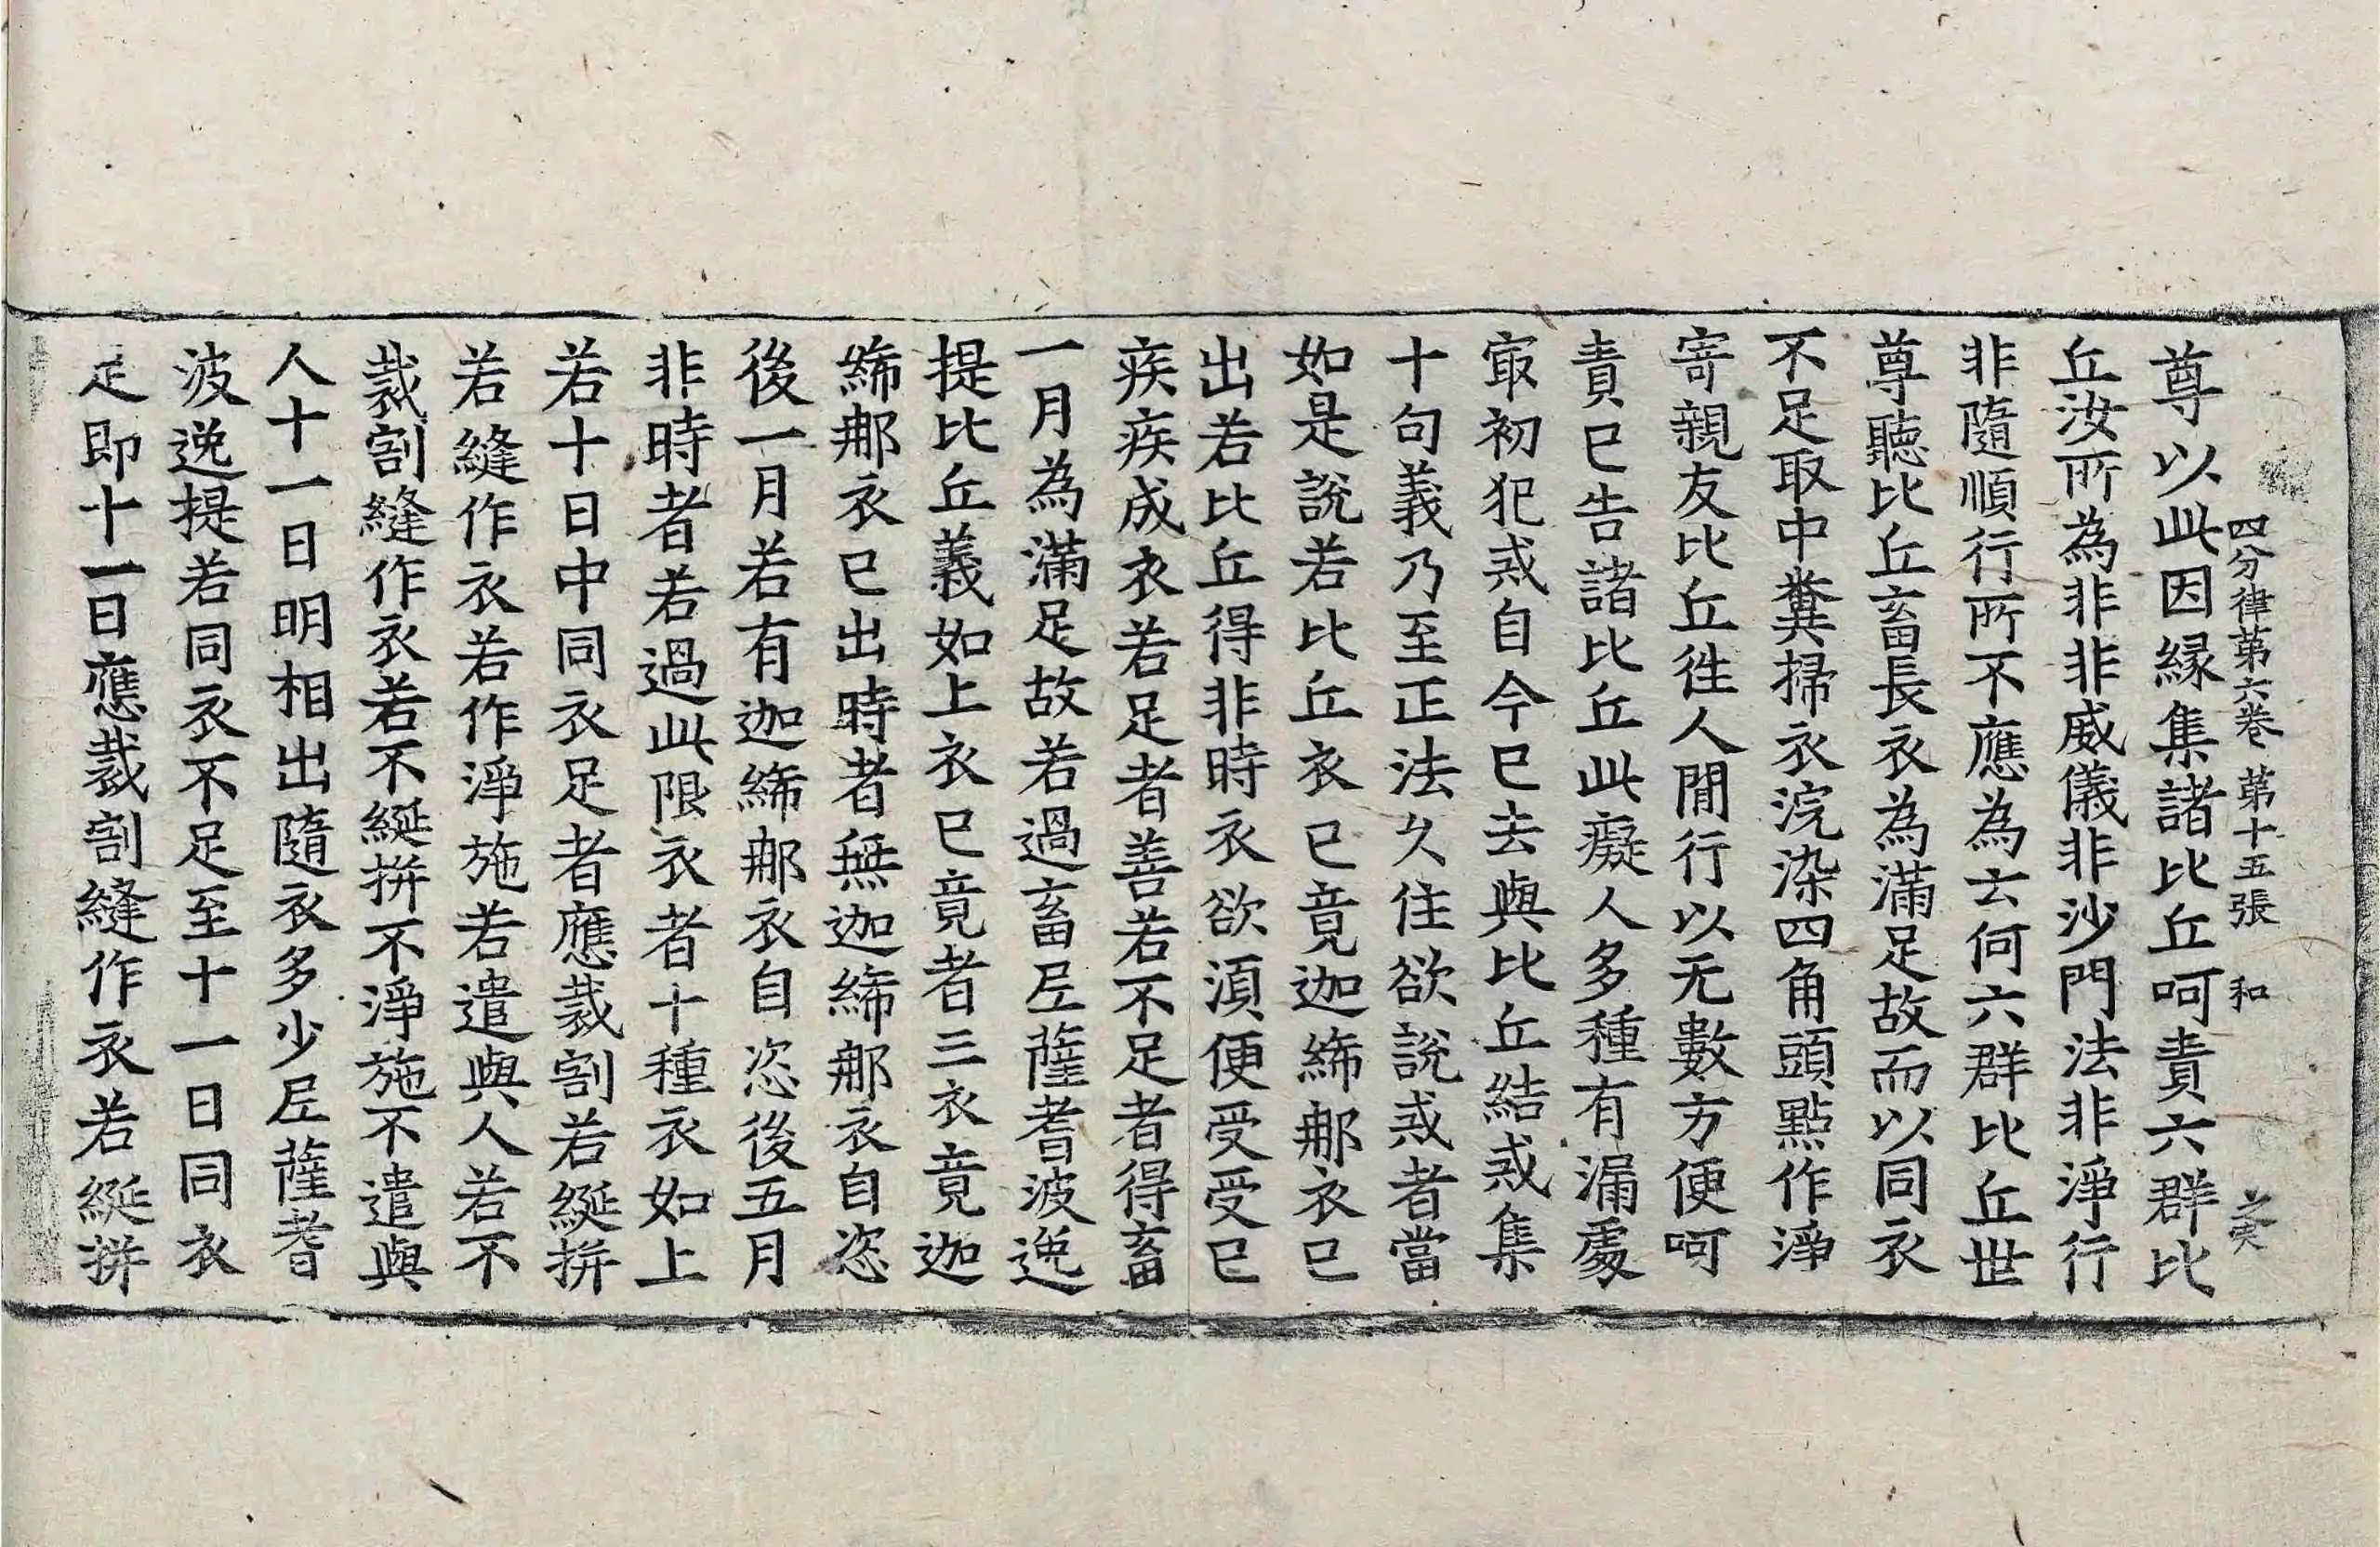 四分律第六卷 第十五張 和
尊以此因縁集諸比丘呵責六群比
丘汝所為非非威儀非沙門法非淨行
非隨順行所不應為云何六群比丘世
尊聽比丘畜長衣為滿足故而以同衣
不足取中糞掃衣浣染四角頭㸃作淨
寄親友比丘徃人間行以无數方便呵
責已告諸比丘此癡人多種有漏處
㝡初犯戒自今已去與比丘結戒集
十句義乃至正法久住欲說戒者當
如是說若比丘衣已竟迦絺那衣已
出若比丘得非時衣欲須便受受已
疾疾成衣若足者善若不足者得畜
一月為滿足故若過畜尼薩耆波逸
提比丘義如上衣已竟者三衣竟迦
絺那衣已出時者無迦絺那衣自恣
後一月若有迦絺那衣自恣後五月
非時者若過此限衣者十種衣如上
若十日中同衣足者應裁割若綖拼
若縫作衣若作淨施若遣與人若不
裁割縫作衣若不綖拼不淨施不遣與
人十一日明相出隨衣多少尼薩耆
波逸提若同衣不足至十一日同衣
足即十一日應裁割縫作衣若綖拼